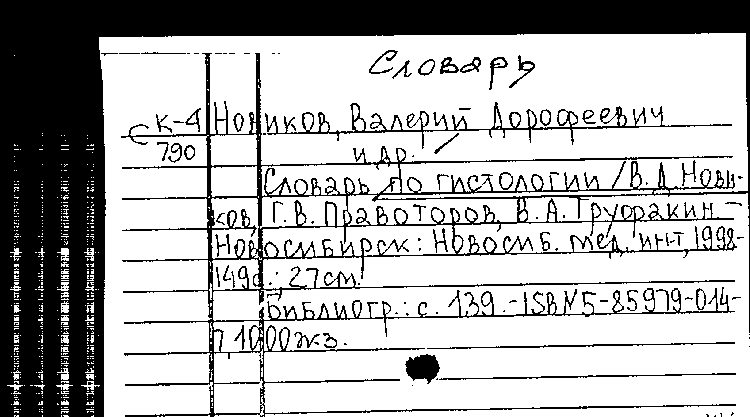 Словарь
СК-4 Новиков, Валерий Дорофеевич
790 и др.
Словарь по гистологии / В.Д. Нови-
ков, Г.В. Правоторов, В.А. Труфакин -
Новосибирск: Новосиб. мед. инт, 1998-
149с.; 27см.
Библиогр.: с. 139.-ISBN 5-85979-014-
7, 1000жз.